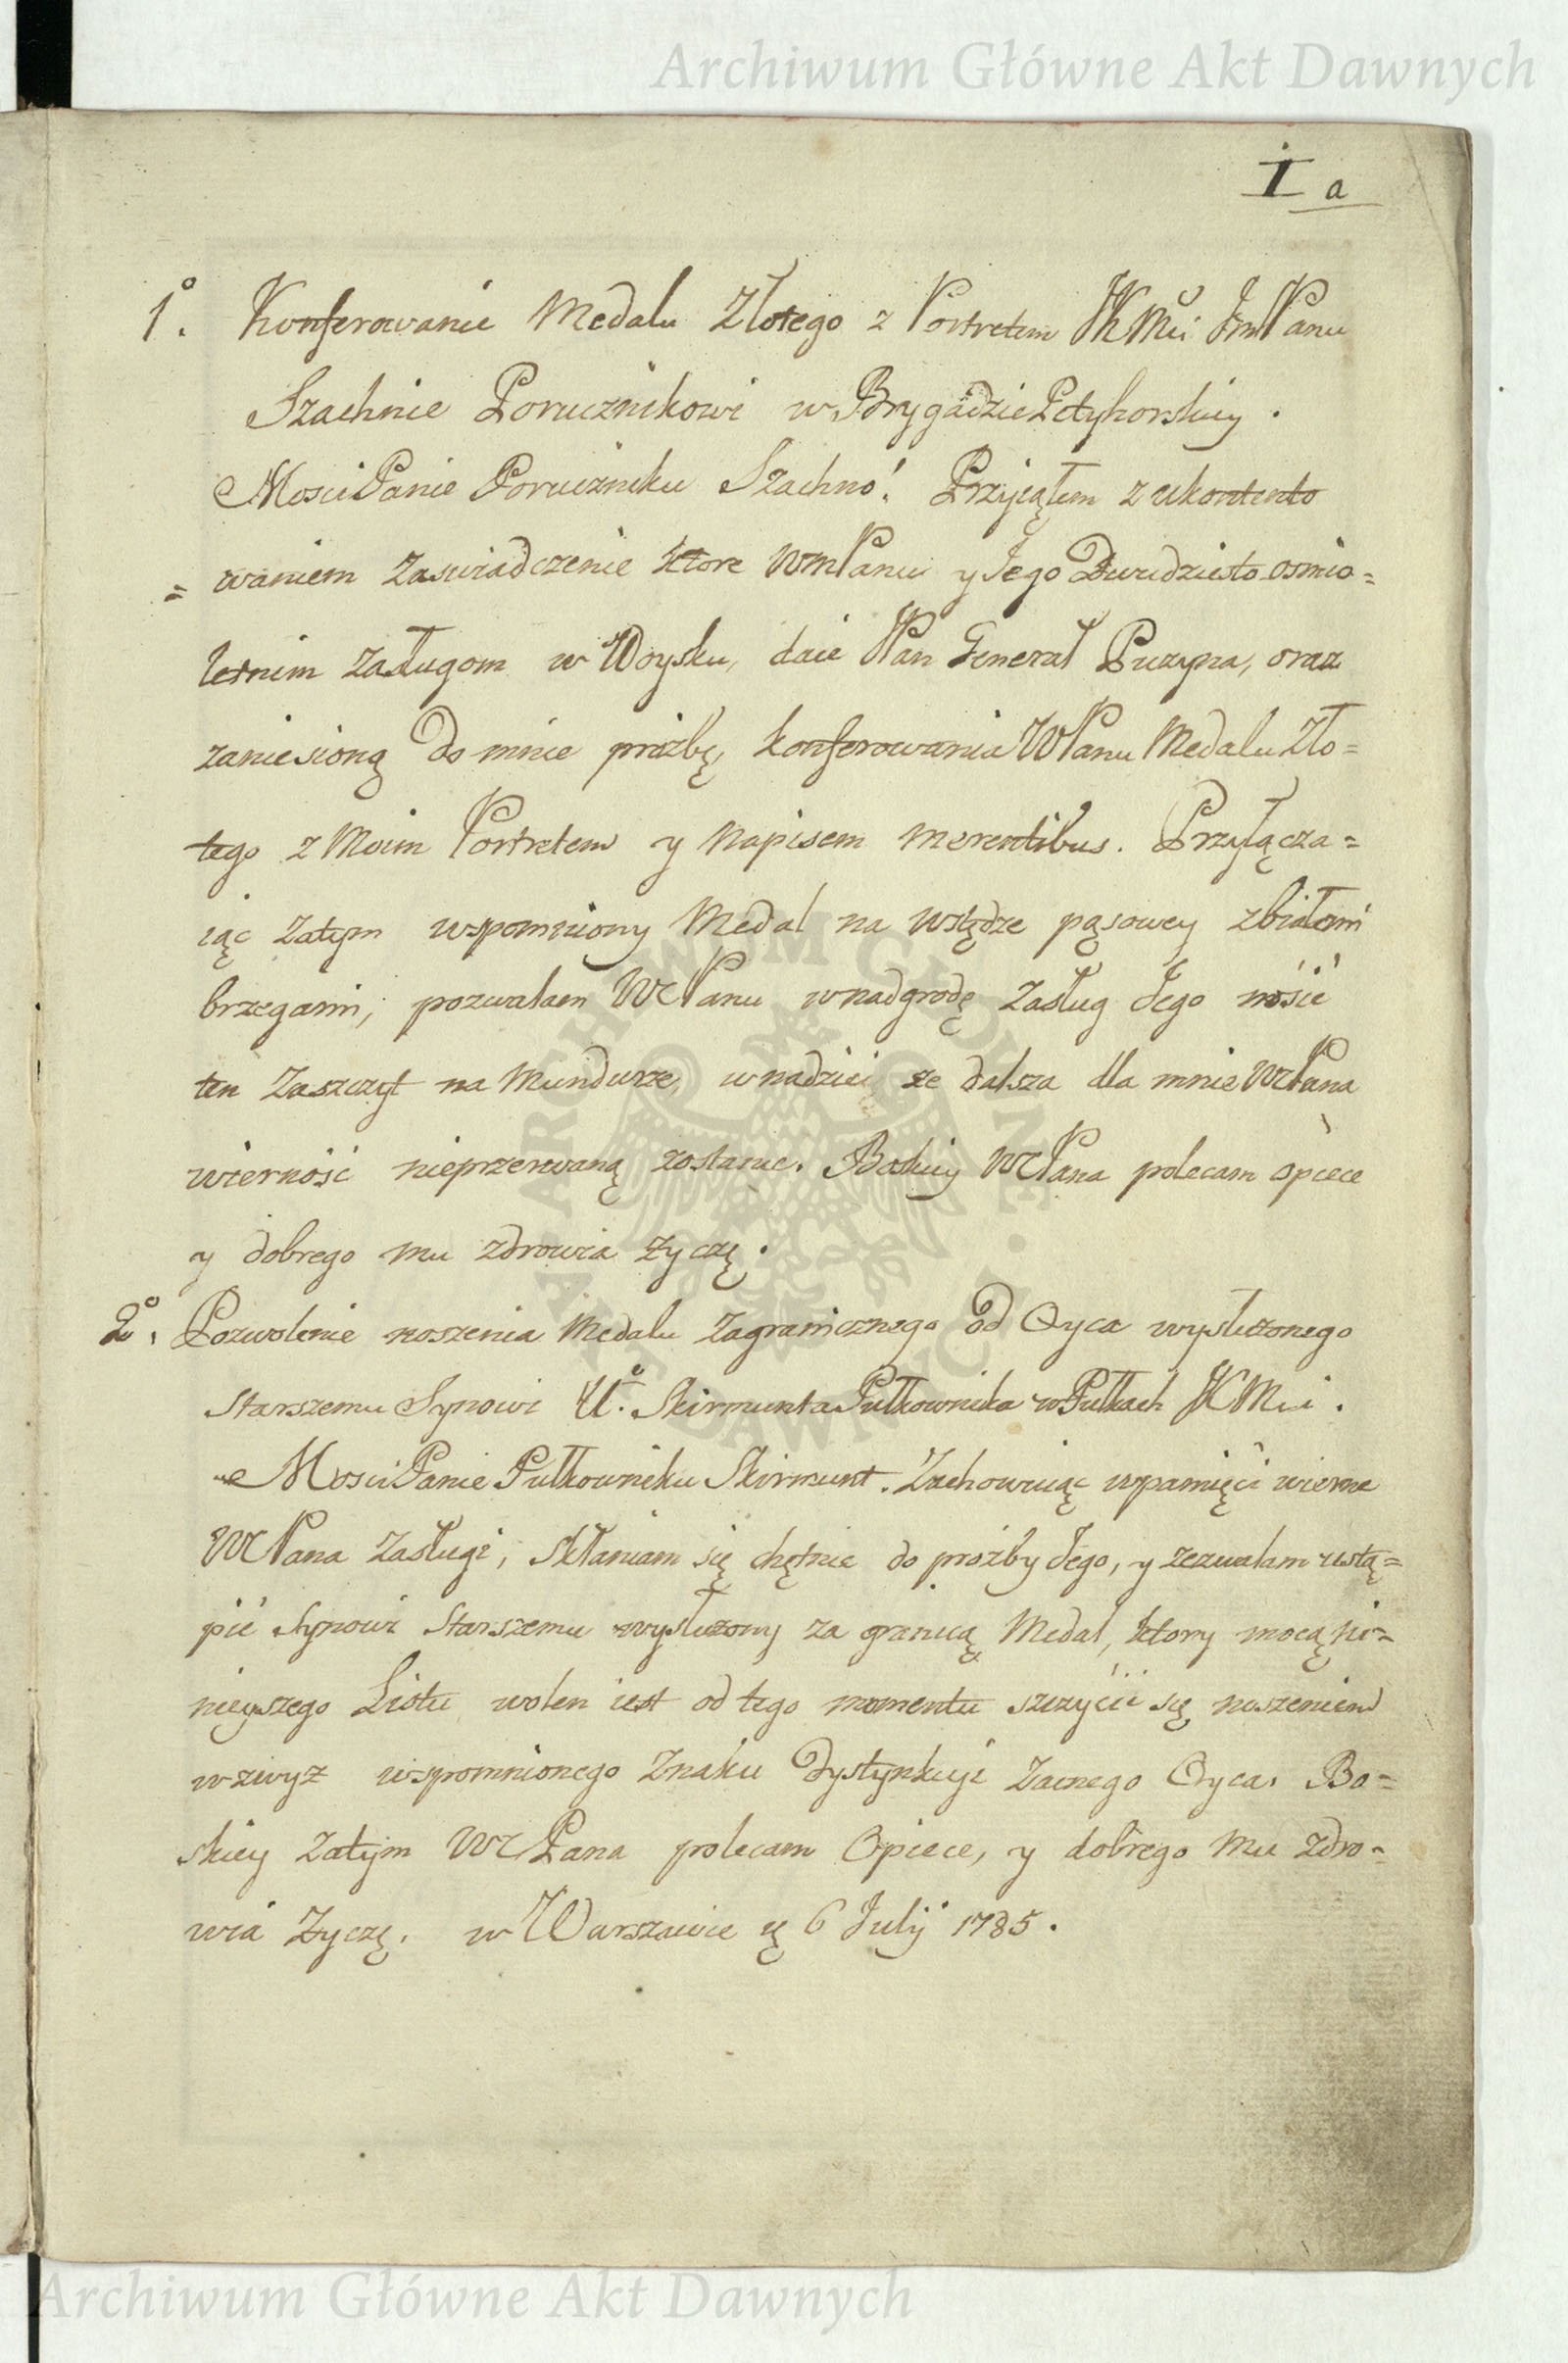 Archiwum Główne Akt Dawnych
I a
1º. Konferowanie Medalu Złotego z Portretem JKMci JmPanu
Szachnie Porucznikowi w Brygadzie Petyhorskiey.
Mosci Panie Poruczniku Szachno! Przyiąłem z ukontento
= waniem zaswiadczenie ktore WmPanu y Jego Dwudziesto osmio=
letnim zasługom w Woysku, daie JPan Generał Puzyna, oraz
zaniesioną do mnie proźbę, konferowania WPanu Medalu Zło=
tego z Moim Portretem y Napisem Merentibus. Przyłącza=
iąc zatym wspomniony Medal na wstędze pąsowey z białemi
brzegami, pozwalam WPanu w nadgrodę zasług Jego nosić
ten Zaszczyt na Mundurze, w nadziei że dalsza dla mnie WPana
wierność nieprzerwaną zostanie. Boskiey WPana polecam opiece
y dobrego mu zdrowia życzę.
2º. Pozwolenie noszenia Medalu Zagranicznego od Oyca wysłużonego
Starszemu Synowi Uº. Skirmunta Pułkownika w Pułkach JKMci.
Mosci Panie Pułkowniku Skirmunt. Zachowuiąc w pamięci wierne
WPana Zasługi, skłaniam się chętnie do proźby Jego, y zezwalam ustą=
pić Synowi Starszemu wysłużony za granicą Medal, ktory mocą ni=
nieyszego Listu wolen iest od tego momentu szczycić się noszeniem
wzwyż wspomnionego Znaku dystynkcyi Zacnego Oyca. Bo=
skiey zatym WPana polecam Opiece, y dobrego mu zdro=
wia życzę. w Warszawie 6 Julij 1785.
ARCHIWUM GŁÓWNE AKT DAWNYCH
Archiwum Główne Akt Dawnych